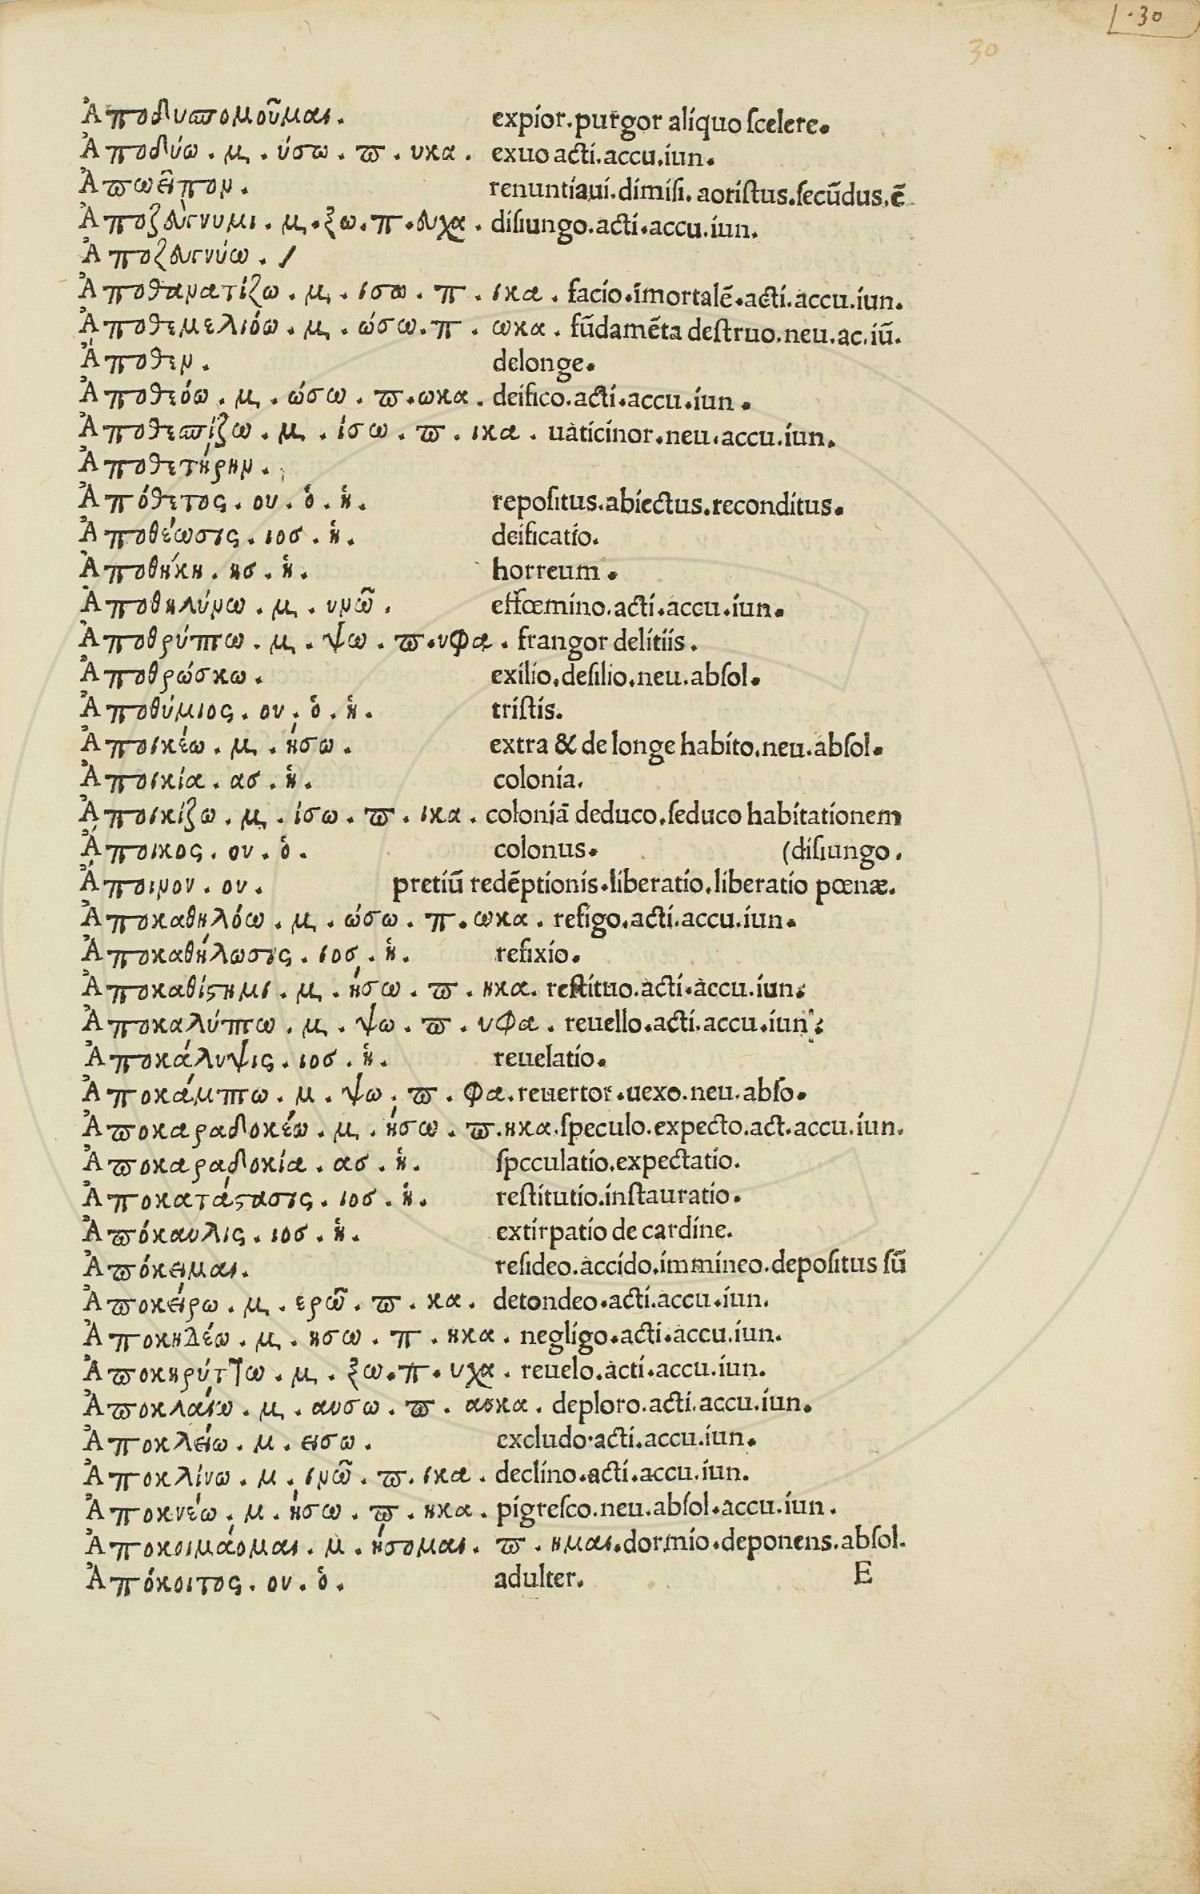 30
30
Ἀποδυσπομοῦμαι. expior. purgor aliquo scelere.
Ἀποδύω. μ. ύσω. π. υκα. exuo acti. accu. iun.
Ἀπωεῖπον. renuntiaui. dimisi. aoristus. secũdus. ẽ
Ἀποζεύγνυμι. μ. ξω. π. ευχα. disiungo. acti. accu. iun.
Ἀποζευγνύω. /
Ἀποθανατίζω. μ. ισω. π. ικα. facio. ĩmortalẽ. acti. accu. iun.
Ἀποθεμελιόω. μ. ώσω. π. ωκα. fũdamẽta destruo. neu. ac. iũ.
Ἄποθεν. delonge.
Ἀποθεόω. μ. ώσω. π. ωκα. deifico. acti. accu. iun.
Ἀποθεσπίζω. μ. ίσω. π. ικα. uaticinor. neu. accu. iun.
Ἀποθετήρην.
Ἀπόθετος. ου. ὁ. ἡ. repositus. abiectus. reconditus.
Ἀποθέωσις. ιοσ. ἡ. deificatio.
Ἀποθήκη. ησ. ἡ. horreum.
Ἀποθηλύνω. μ. υνῶ. effœmino. acti. accu. iun.
Ἀποθρύπτω. μ. ψω. π. υφα. frangor delitiis.
Ἀποθρώσκω. exilio. desilio. neu. absol.
Ἀποθύμιος. ου. ὁ. ἡ. tristis.
Ἀποικέω. μ. ήσω. extra & de longe habito. neu. absol.
Ἀποικία. ασ. ἡ. colonia.
Ἀποικίζω. μ. ίσω. π. ικα. coloniã deduco. seduco habitationem
Ἄποικος. ου. ὁ. colonus. (disiungo.
Ἄποινον. ου. pretiũ redẽptionis. liberatio. liberatio pœnæ.
Ἀποκαθηλόω. μ. ώσω. π. ωκα. refigo. acti. accu. iun.
Ἀποκαθήλωσις. ιοσ. ἡ. refixio.
Ἀποκαθίστημι. μ. ήσω. π. ηκα. restituo. acti. accu. iun.
Ἀποκαλύπτω. μ. ψω. π. υφα. reuello. acti. accu. iun.
Ἀποκάλυψις. ιοσ. ἡ. reuelatio.
Ἀποκάμπτω. μ. ψω. π. φα. reuertor. uexo. neu. abso.
Ἀποκαραδοκέω. μ. ήσω. π. ηκα. speculo. expecto. act. accu. iun.
Ἀποκαραδοκία. ασ. ἡ. spcculatio. expectatio.
Ἀποκατάστασις. ιοσ. ἡ. restitutio. instauratio.
Ἀπόκαυλις. ιοσ. ἡ. extirpatio de cardine.
Ἀπόκειμαι. resideo. accido. immineo. depositus sũ
Ἀποκείρω. μ. ερῶ. π. κα. detondeo. acti. accu. iun.
Ἀποκηδέω. μ. ησω. π. ηκα. negligo. acti. accu. iun.
Ἀποκηρύττω. μ. ξω. π. υχα. reuelo. acti. accu. iun.
Ἀποκλαίω. μ. αυσω. π. αυκα. deploro. acti. accu. iun.
Ἀποκλείω. μ. εισω. excludo. acti. accu. iun.
Ἀποκλίνω. μ. ινῶ. π. ικα. declino. acti. accu. iun.
Ἀποκνέω. μ. ήσω. π. ηκα. pigresco. neu. absol. accu. iun.
Ἀποκοιμάομαι. μ. ήσομαι. π. ημαι. dormio. deponens. absol.
Ἀπόκοιτος. ου. ὁ. adulter. E